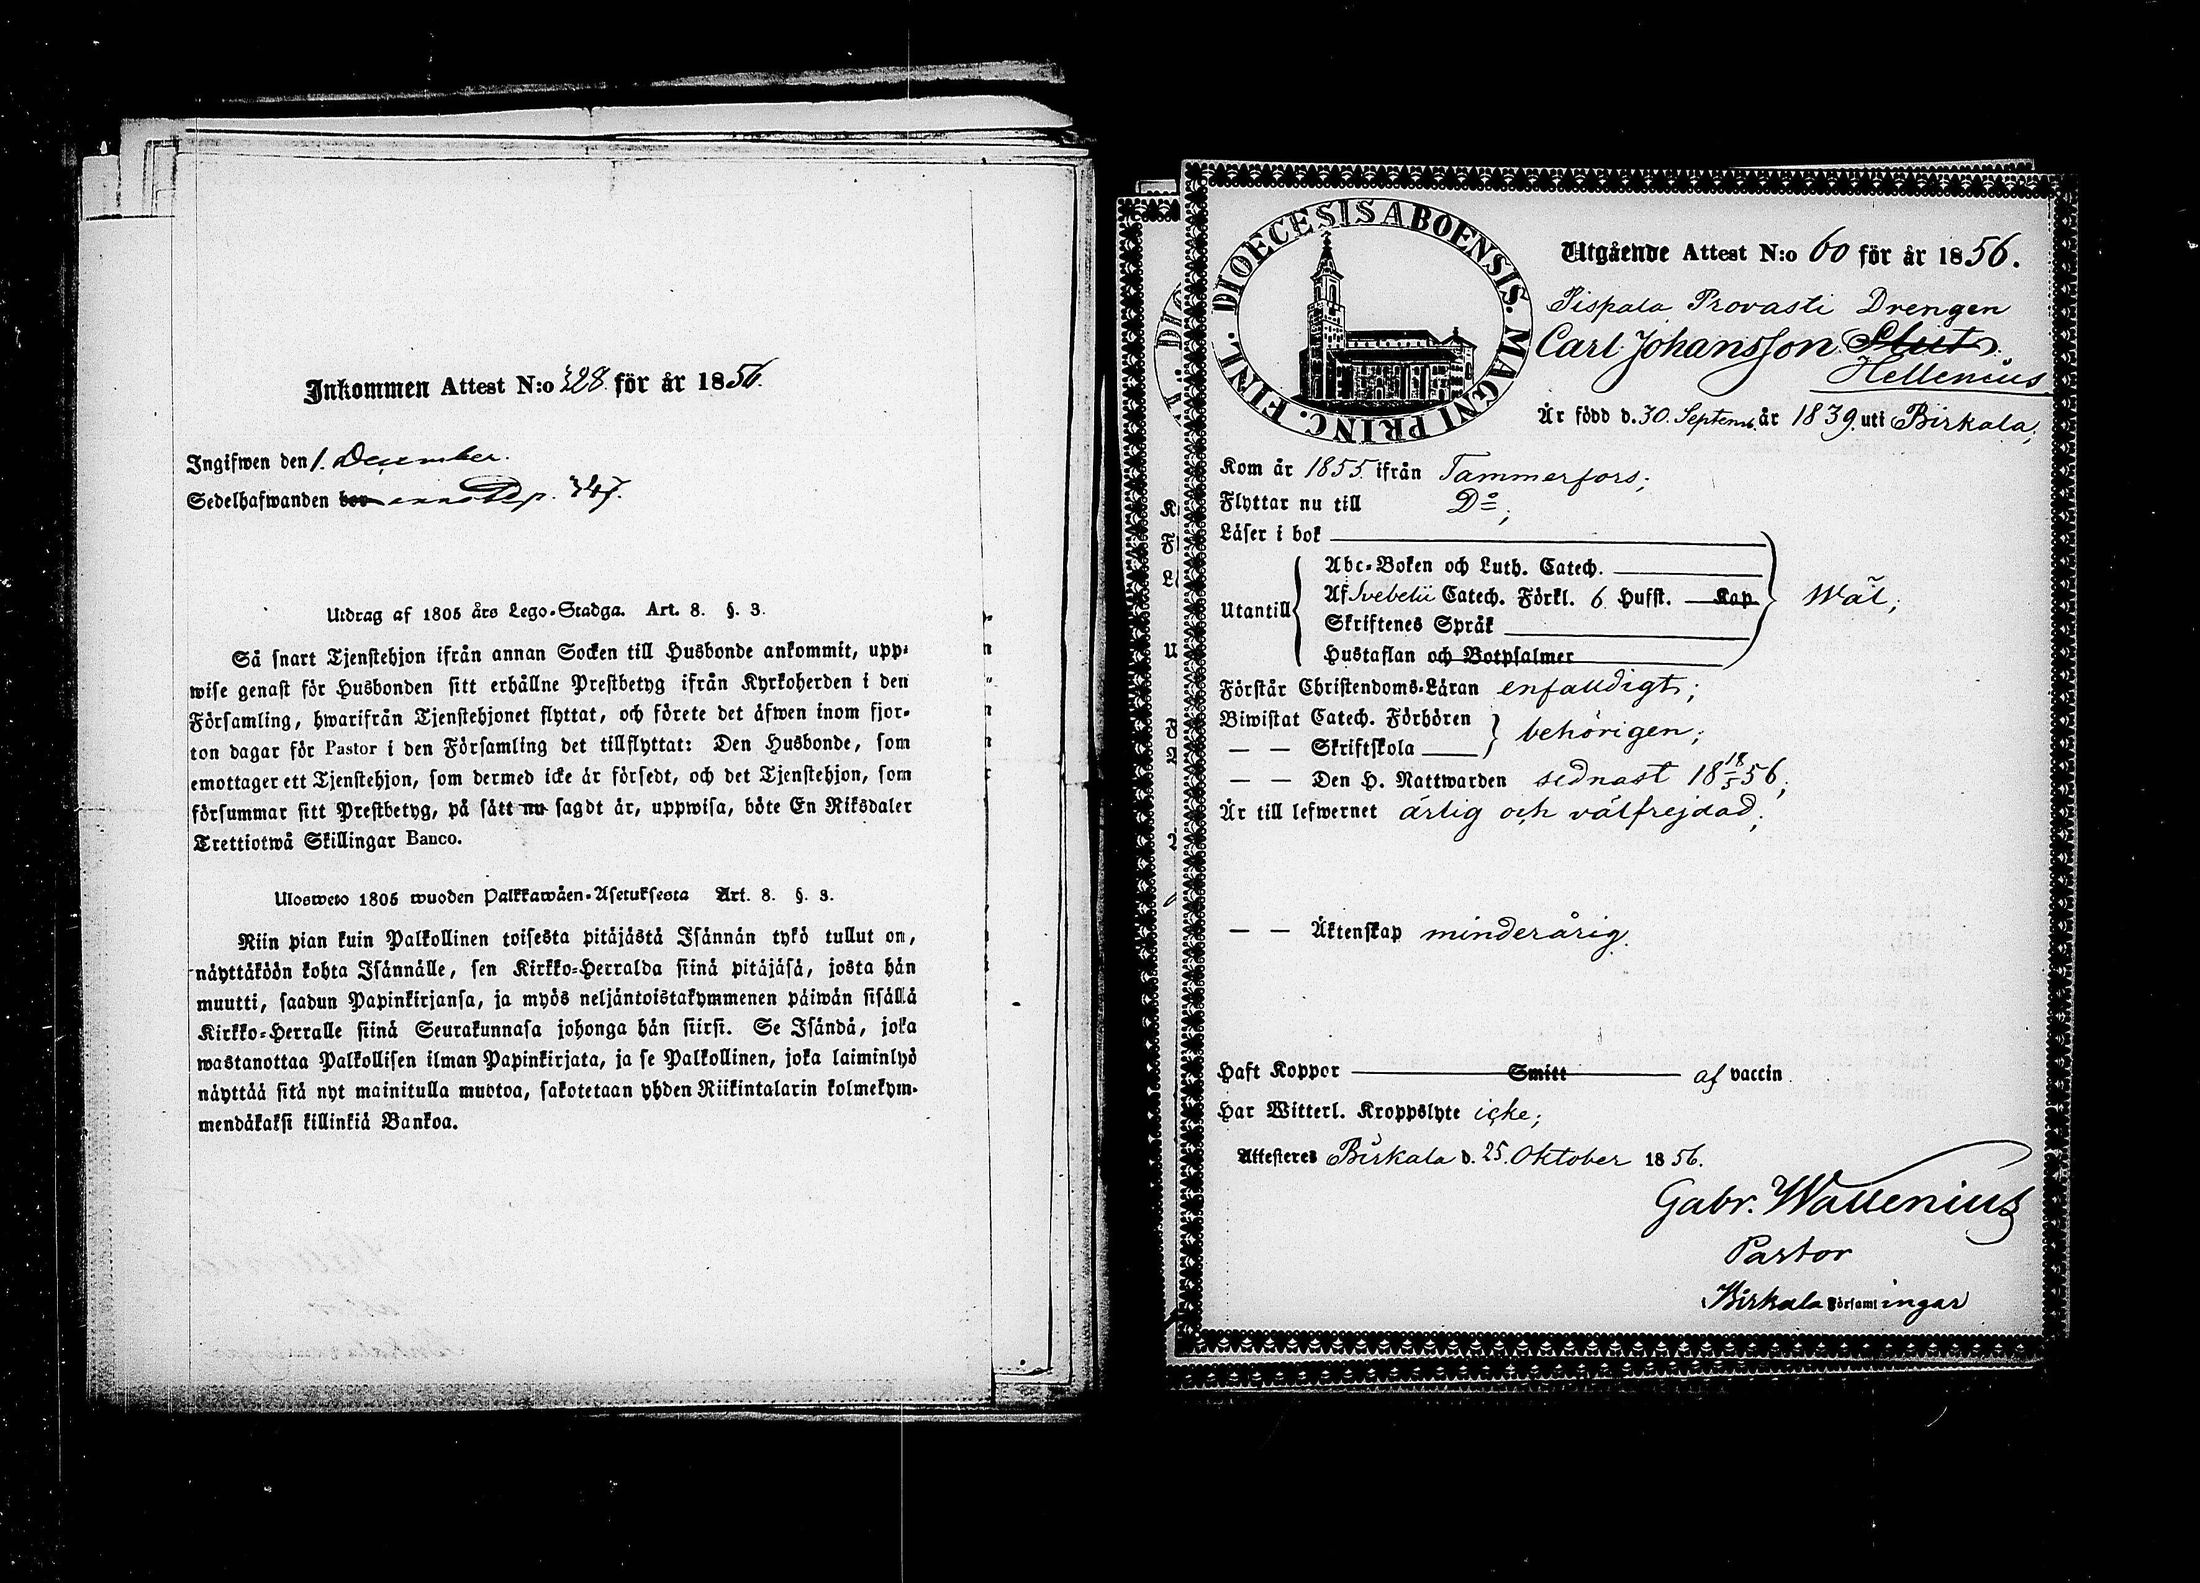 Inkommen Attest N:o 328. för år 1856.
Ingifwen den 1. December.
Sedelhafwanden bor 347.
Utdrag af 1805 års Lego-Stadga. Art. 8. §. 3.
Så snart Tjenstehjon ifrån annan Socken till Husbonde ankommit, upp-
wise genast för Husbonden sitt erhållne Prestbetyg ifrån Kyrkoherden i den
Församling, hwarifrån Tjenstehjonet flyttat, och förete det äfwen inom fjor-
ton dagar för Pastor i den Församling det tillflyttat: Den Husbonde, som
emottager ett Tjenstehjon, som dermed icke är försedt, och det Tjenstehjon, som
försummar sitt Prestbetyg, på sätt nu sagdt är, uppwisa, böte En Riksdaler
Trettiotwå Skillingar Banco.
Ulosweto 1805 wuoden Palkkawäen-Asetuksesta Art. 8. §. 3.
Niin pian kuin Palkollinen toisesta pitäjästä Isännän tykö tullut on,
näyttäköön kohta Isännälle, sen Kirkko-Herralda siinä pitäjäsä, josta hän
muutti, saadun Papinkirjansa, ja myös neljäntoistakymmenen päiwän sisällä
Kirkko-Herralle siinä Seurakunnasa johonga hän siirsi. Se Isändä, joka
wastanottaa Palkollisen ilman Papinkirjata, ja se Palkollinen, joka laiminlyö
näyttää sitä nyt mainitulla muotoa, sakotetaan yhden Riikintalarin kolmekym-
mendäkaksi killinkiä Bankoa.
DIOECESIS ABOENSIS. MAGNI PRINC. FINL.
Utgående Attest N:o 60 för år 1856.
Pispala Provasti Drengen
Carl Johansson
Hellenius
Är född d. 30. Septemb. år 1839 uti Birkala;
Kom år 1855 ifrån Tammerfors;
Flyttar nu till Do;
Läser i bok
Abc-Boken och Luth. Catech.
Utantill Af Svebelii Catech. Förkl. 6 Hufst. Kap Wäl;
Skriftenes Språk
Hustaflan och Botpsalmer
Förstår Christendoms-Läran enfalldigt;
Biwistat Catech. Förhören behörigen;
— — Skriftskola
— — Den H. Nattwarden sednast 18 18/5 56;
Är till lefwernet ärlig och välfrejdad;
— — Äktenskap minderårig.
Haft Koppor Smitt af vaccin
Har Witterl. Kroppslyte icke;
Attesteres Birkala d. 25. Oktober 1856.
Gabr. Wallenius
Pastor
i Birkala Församlingar